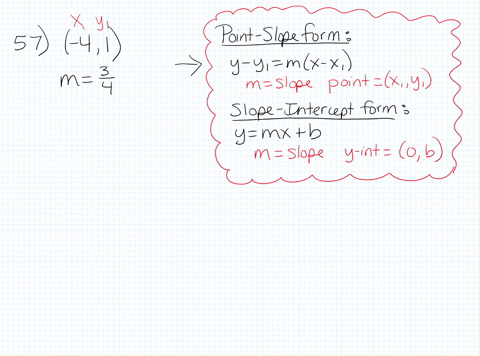 x y₁
57) (-4, 1)
m = 3/4
Point-Slope form:
y-y₁=m(x-x₁)
m=slope point=(x₁,y₁)
Slope-Intercept form:
y=mx+b
m=slope y-int=(0,b)